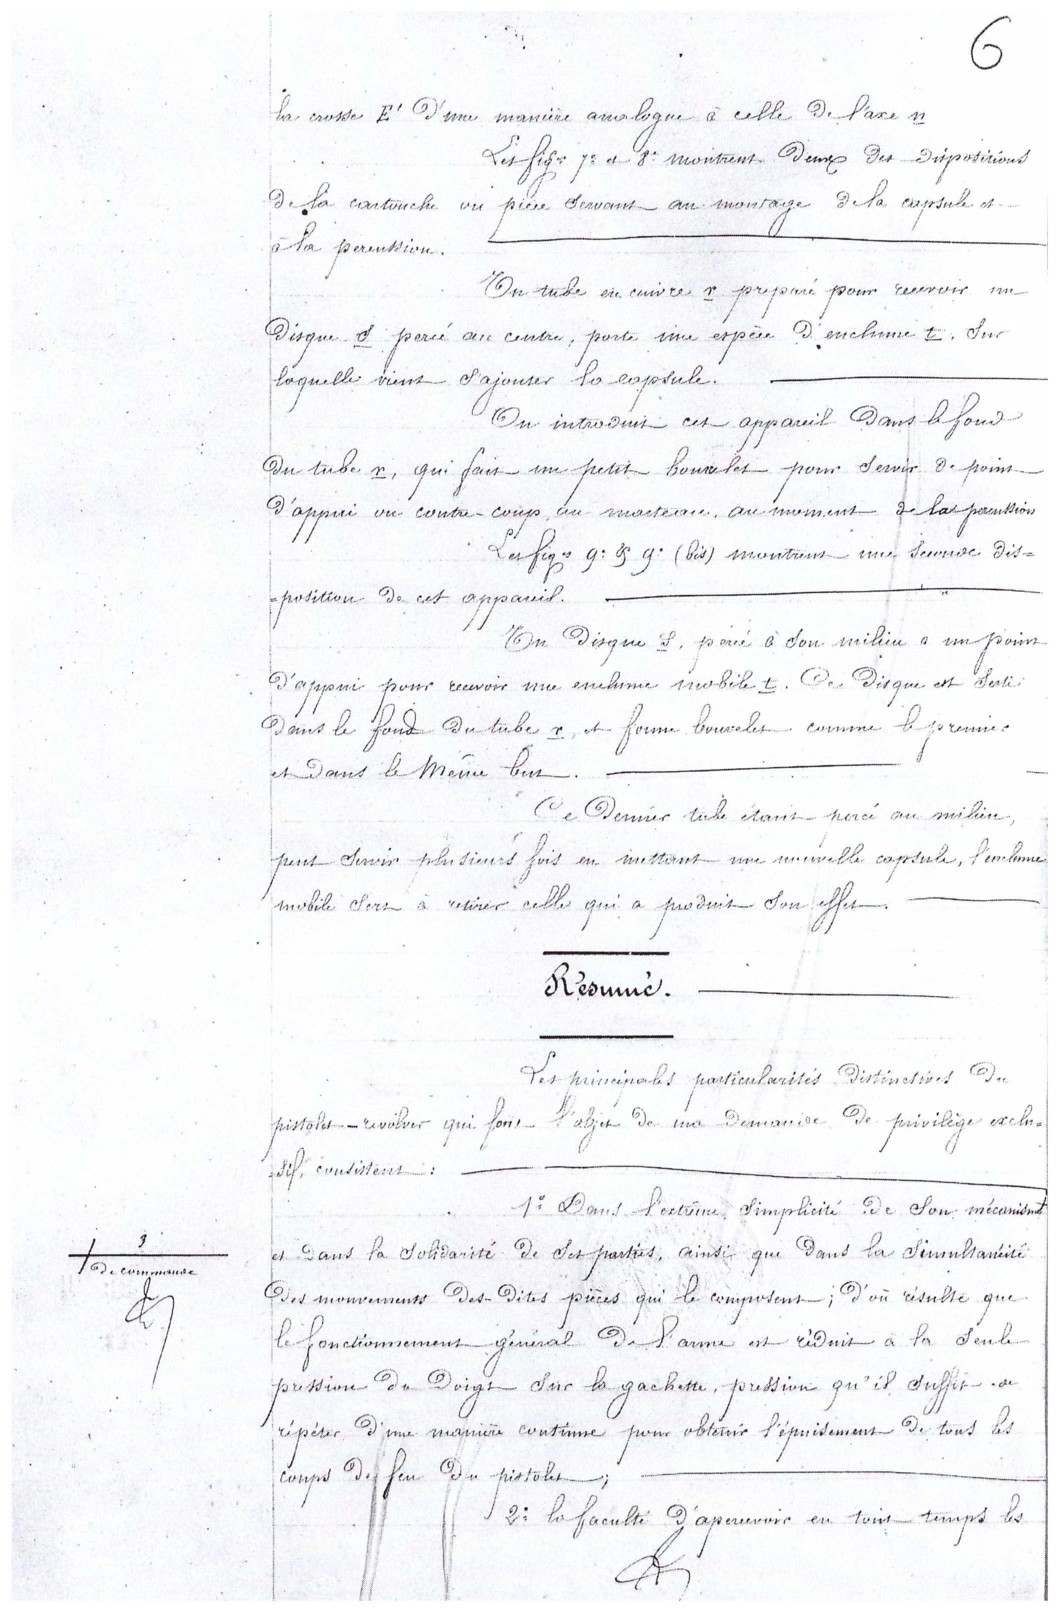 6
la crosse E' d'une manière analogue à celle de l'axe n
Les fig.s 7e et 8e montrent deux des dispositions
de la cartouche ou pièce servant au montage de la capsule et
à la percussion.
Un tube en cuivre r préparé pour recevoir un
disque s percé au centre, porte une espèce d'enclume t. sur
laquelle vient s'ajouter la capsule.
On introduit cet appareil dans le fond
du tube r, qui fait un petit bourrelet pour servir de point
d'appui ou contre-coup au marteau, au moment de la percussion
Les fig.s 9e & 9e (bis) montrent une seconde dis=
=position de cet appareil.
Un disque s, percé à son milieu a un point
d'appui pour recevoir une enclume mobile t. Ce disque est serti
dans le fond du tube r, et forme bourrelet comme le premier
et dans le même but.
Ce dernier tube étant percé au milieu,
peut servir plusieurs fois en mettant une nouvelle capsule, l'enclume
mobile sert à retirer celle qui a produit son effet.
Résumé.
Les principales particularités distinctives du
pistolet-revolver qui font l'objet de ma demande de privilège exclu=
=sif, consistent :
1° Dans l'extrême simplicité de son mécanisme
et dans la solidarité de ses parties, ainsi que dans la simultanéité
3
de commande
des mouvements des dites pièces qui le composent ; d'où résulte que
le fonctionnement général de l'arme est réduit à la seule
pression du doigt sur la gachette, pression qu'il suffit de
répéter d'une manière continue pour obtenir l'épuisement de tous les
coups de feu du pistolet ;
2° la faculté d'apercevoir en tout temps les